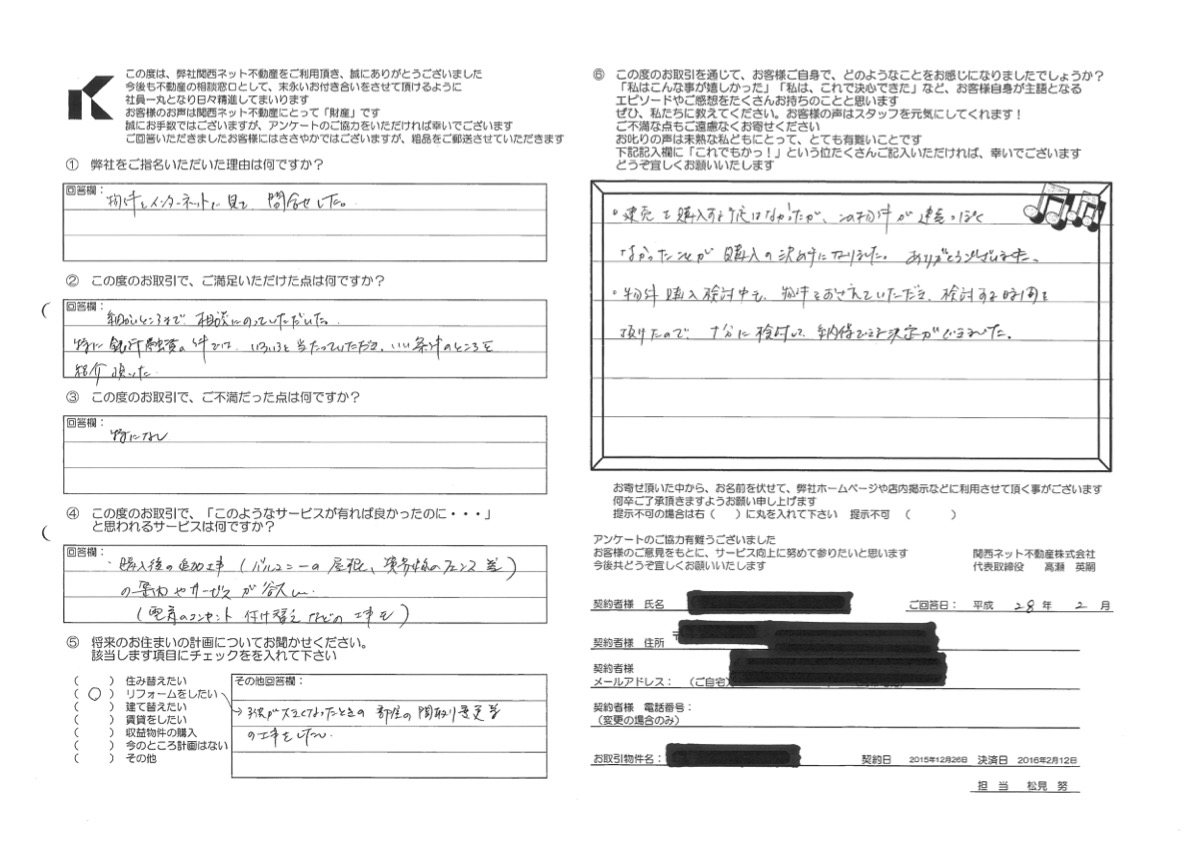 この度は、弊社関西ネット不動産をご利用頂き、誠にありがとうございました
今後も不動産の相談窓口として、末永いお付き合いをさせて頂けるように
社員一丸となり日々精進してまいります
お客様のお声は関西ネット不動産にとって「財産」です
誠にお手数ではございますが、アンケートのご協力をいただければ幸いでございます
ご回答いただきましたお客様にはささやかではございますが、粗品をご郵送させていただきます
① 弊社をご指名いただいた理由は何ですか?
回答欄:
物件をインターネットで見て 問合せした。
② この度のお取引で、ご満足いただけた点は何ですか?
回答欄:
細かいところまで、相談にのっていただいた。
特に銀行融資の件では、いろいろと当たっていただき、いい条件のところを
紹介頂いた
③ この度のお取引で、ご不満だった点は何ですか?
回答欄:
特になし
④ この度のお取引で、「このようなサービスが有れば良かったのに・・・」
と思われるサービスは何ですか?
回答欄:
・購入後の追加工事(バルコニーの屋根、フェンス等)
の案内やサービスが欲しい
(コンセント 付け替えなどの工事も)
⑤ 将来のお住まいの計画についてお聞かせください。
該当します項目にチェックをを入れて下さい
( ) 住み替えたい
(○) リフォームをしたい
( ) 建て替えたい
( ) 賃貸をしたい
( ) 収益物件の購入
( ) 今のところ計画はない
( ) その他
その他回答欄:
→子供が大きくなったときの 部屋の間取り変更等
の工事をしたい
⑥ この度のお取引を通じて、お客様ご自身で、どのようなことをお感じになりましたでしょうか?
「私はこんな事が嬉しかった」「私は、これで決心できた」など、お客様自身が主語となる
エピソードやご感想をたくさんお持ちのことと思います
ぜひ、私たちに教えてください。お客様の声はスタッフを元気にしてくれます!
ご不満な点もご遠慮なくお寄せください
お叱りの声は未熟な私どもにとって、とても有難いことです
下記記入欄に「これでもかっ!」という位たくさんご記入いただければ、幸いでございます
どうぞ宜しくお願いいたします
・建売を購入する予定はなかったが、この物件が建売っぽく
なかったことが購入の決め手になりました。ありがとうございました。
・物件購入検討中も、物件をおさえていただき、検討する時間を
頂けたので、十分に検討して、納得できる決定ができました。
お寄せ頂いた中から、お名前を伏せて、弊社ホームページや店内掲示などに利用させて頂く事がございます
何卒ご了承頂きますようお願い申し上げます
提示不可の場合は右( )に丸を入れて下さい 提示不可 ( )
アンケートのご協力有難うございました
お客様のご意見をもとに、サービス向上に努めて参りたいと思います
今後共どうぞ宜しくお願いいたします
関西ネット不動産株式会社
代表取締役 高瀬 英嗣
契約者様 氏名
ご回答日: 平成 28 年 2 月
契約者様 住所 〒
契約者様
メールアドレス: (ご自宅)
契約者様 電話番号:
(変更の場合のみ)
お取引物件名:
契約日 2015年12月26日 決済日 2016年2月12日
担 当 松見 努